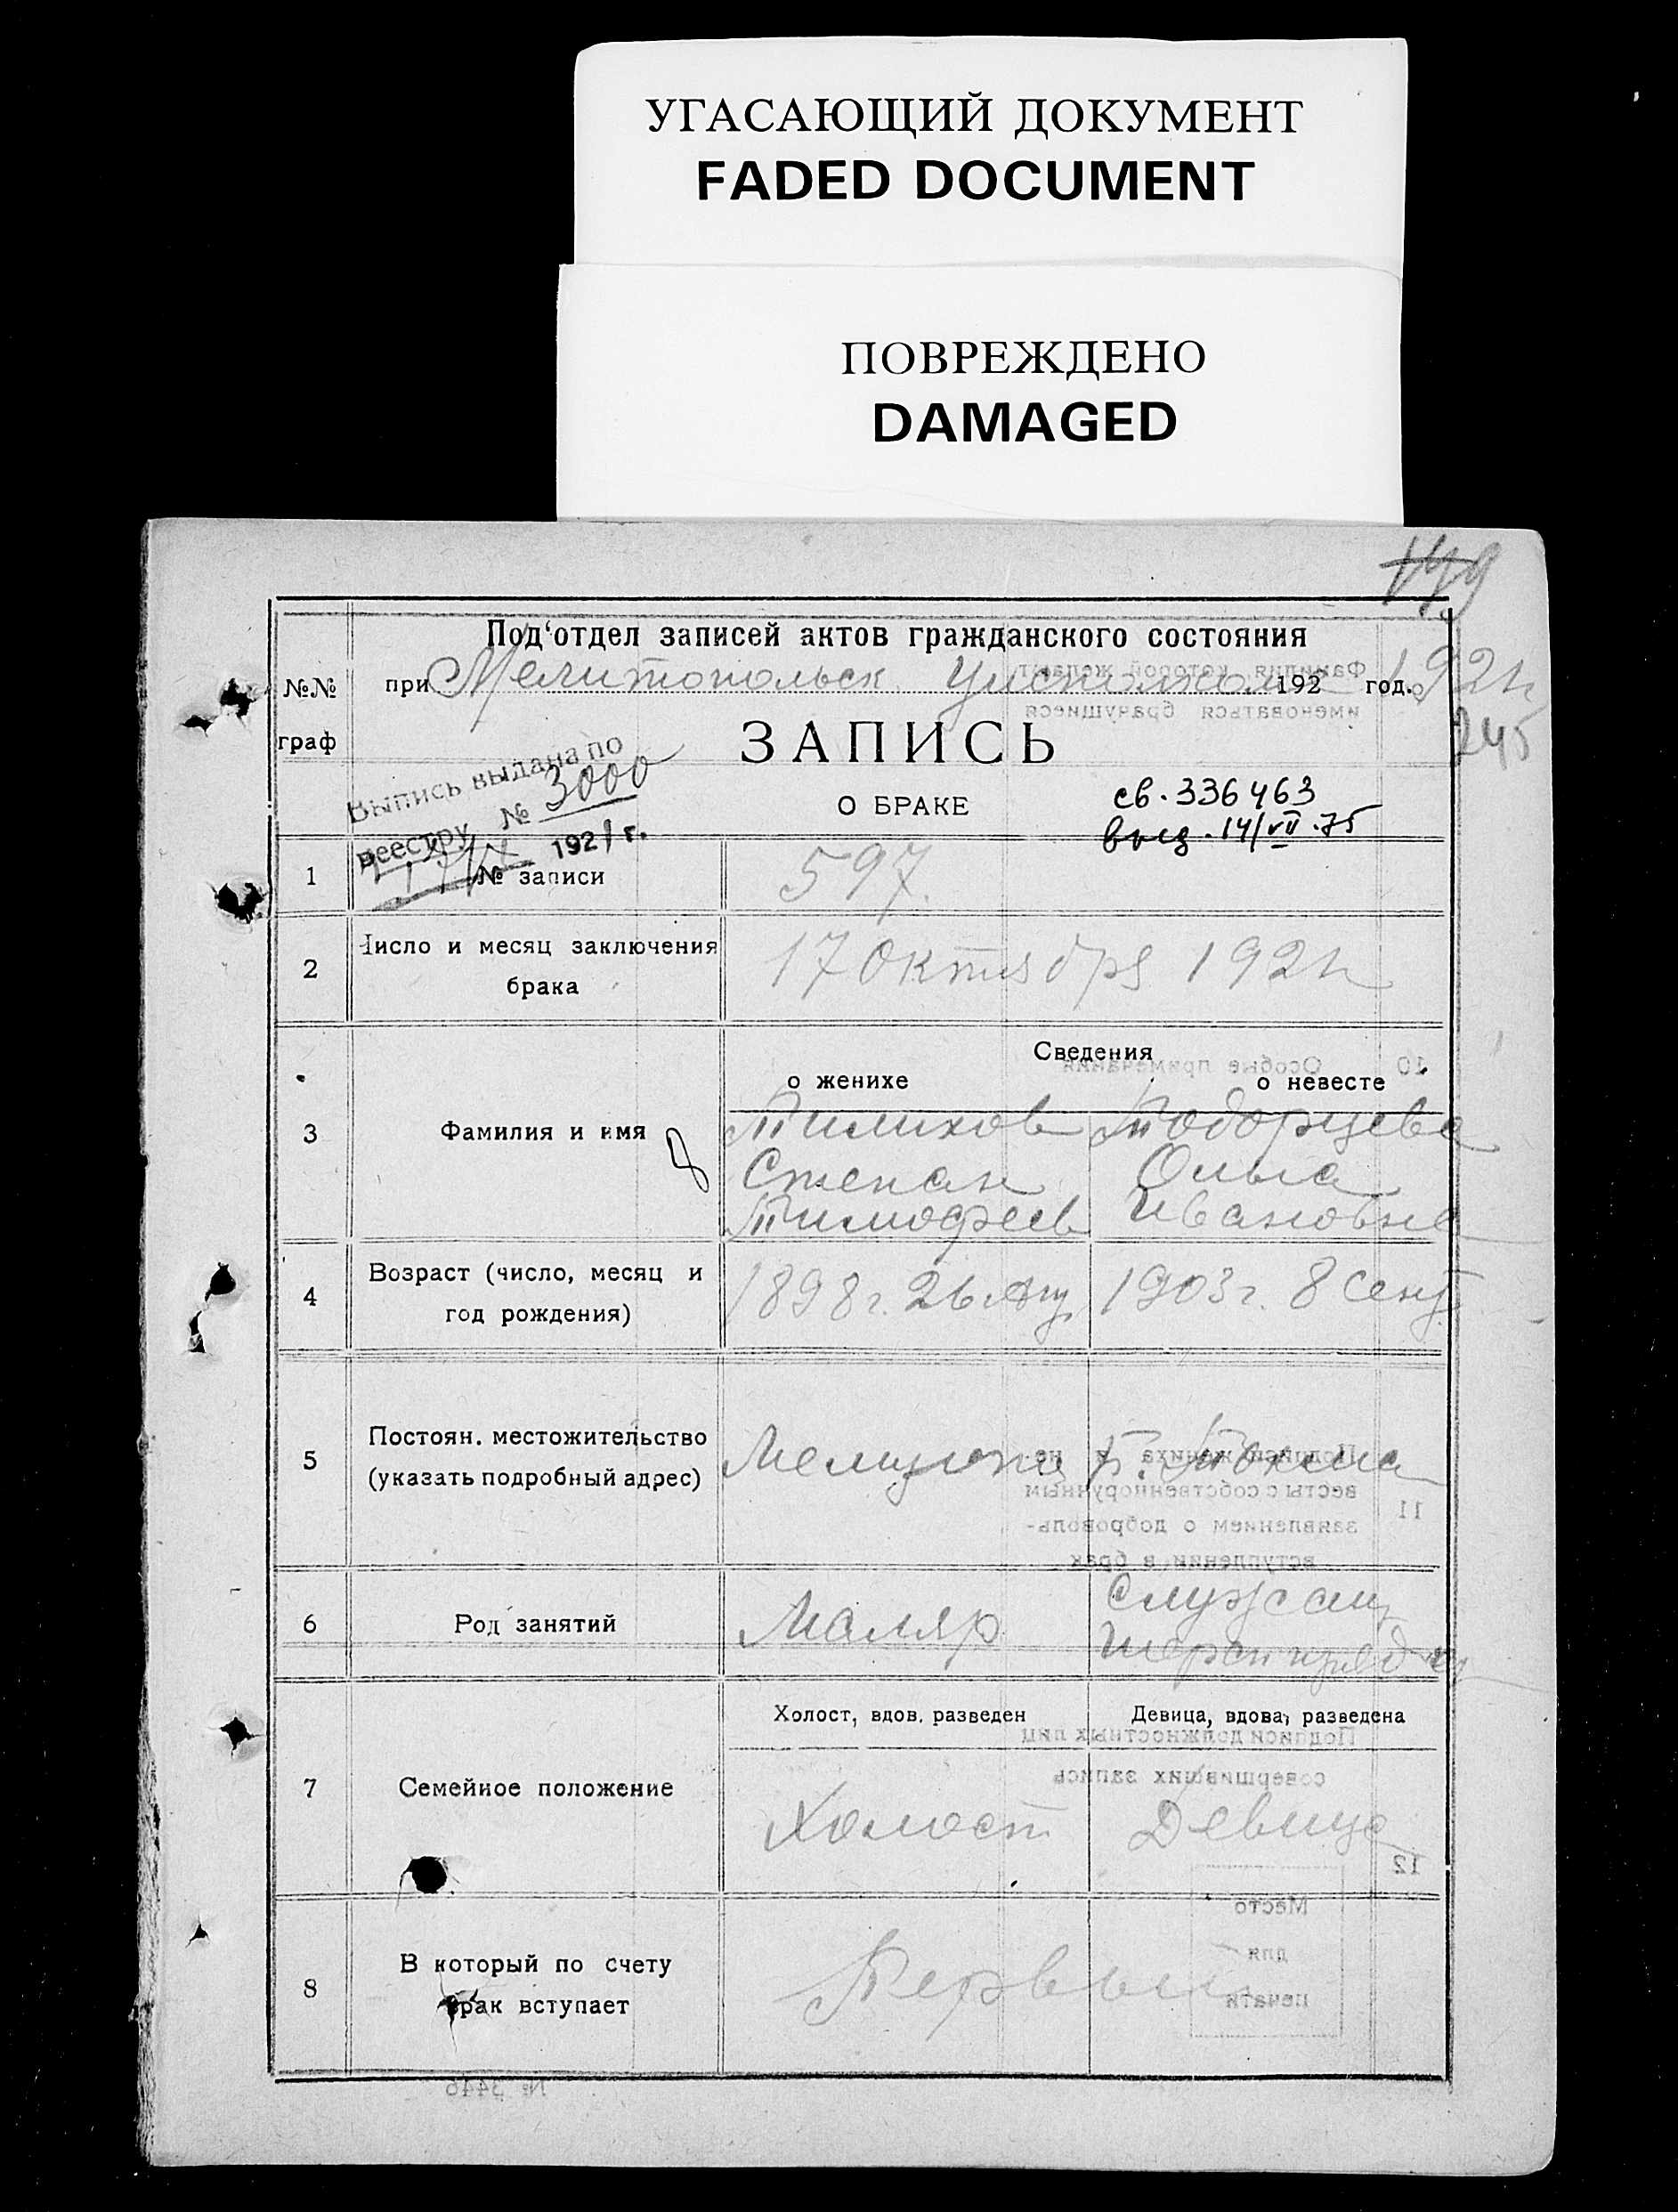 УГАСАЮЩИЙ ДОКУМЕНТ
FADED DOCUMENT
ПОВРЕЖДЕНО
DAMAGED
149
Под'отдел записей актов гражданского состояния
№№ граф
при Мелитопольск Уисполкоме 192 год. 1921
245
ЗАПИСЬ
О БРАКЕ
Выпись выдана по
реестру № 3000
1921 г.
св. 336463
выд. 14/VII.75
1 № записи 597.
2 Число и месяц заключения
брака
17 Октября 1921
Сведения
о женихе о невесте
3 Фамилия и имя
Тилихов
Степан
Тимофеев
Ольга
Ивановна
4 Возраст (число, месяц и
год рождения)
1898 г. 26 1903 г. 8 Сент
5 Постоян. местожительство
(указать подробный адрес)
Мелитоп Б. Токмак
6 Род занятий
Маляр
Служащ
7 Семейное положение
Холост, вдов. разведен Девица, вдова, разведена
Холост Девица
8 В который по счету
брак вступает
Первый
Фамилия, которой желают
именоваться брачущиеся
10 Особые примечания
11 Подписи жениха и не-
весты с собственноручным
заявлением о доброволь-
вступлении в брак
Подписи должностных лиц
совершивших запись
12
Место
для
печати
№ 3446